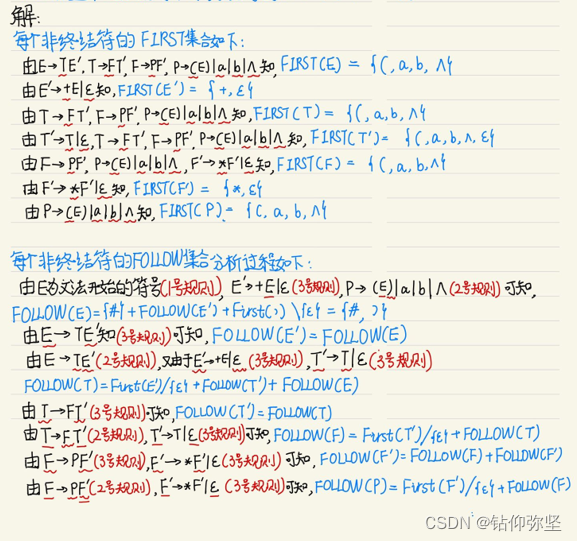 解:
每个非终结符的 FIRST集合如下:
由E→TE',T→FT',F→PF',P→(E)|a|b|∧知,FIRST(E) = {(,a,b,∧}
由E'→+E|ε知,FIRST(E') = {+,ε}
由T→FT',F→PF',P→(E)|a|b|∧知,FIRST(T) = {(,a,b,∧}
由T'→T|ε,T→FT',F→PF',P→(E)|a|b|∧知,FIRST(T') = {(,a,b,∧,ε}
由F→PF',P→(E)|a|b|∧,F'→*F'|ε知,FIRST(F) = {(,a,b,∧}
由F'→*F'|ε知,FIRST(F') = {*,ε}
由P→(E)|a|b|∧知,FIRST(P) = {(,a,b,∧}
每个非终结符的FOLLOW集合分析过程如下:
由E为文法开始的符号(1号规则),E'→+E|ε(3号规则),P→(E)|a|b|∧(2号规则)可知,
FOLLOW(E)={#}+FOLLOW(E')+First())\{ε}={#,)}
由E→TE'知(3号规则)可知,FOLLOW(E')=FOLLOW(E)
由E→TE'(2号规则),又由于E'→+E|ε(3号规则),T'→T|ε(3号规则)
FOLLOW(T)=First(E')/{ε}+FOLLOW(T')+FOLLOW(E)
由T→FT'(3号规则)可知,FOLLOW(T')=FOLLOW(T)
由T→FT'(2号规则),T'→T|ε(3号规则)可知,FOLLOW(F)=First(T')/{ε}+FOLLOW(T)
由F→PF'(3号规则),F'→*F'|ε(3号规则)可知,FOLLOW(F')=FOLLOW(F)+FOLLOW(F')
由F→PF'(2号规则),F'→*F'|ε(3号规则)可知,FOLLOW(P)=First(F')/{ε}+FOLLOW(F)
CSDN @钻仰弥坚